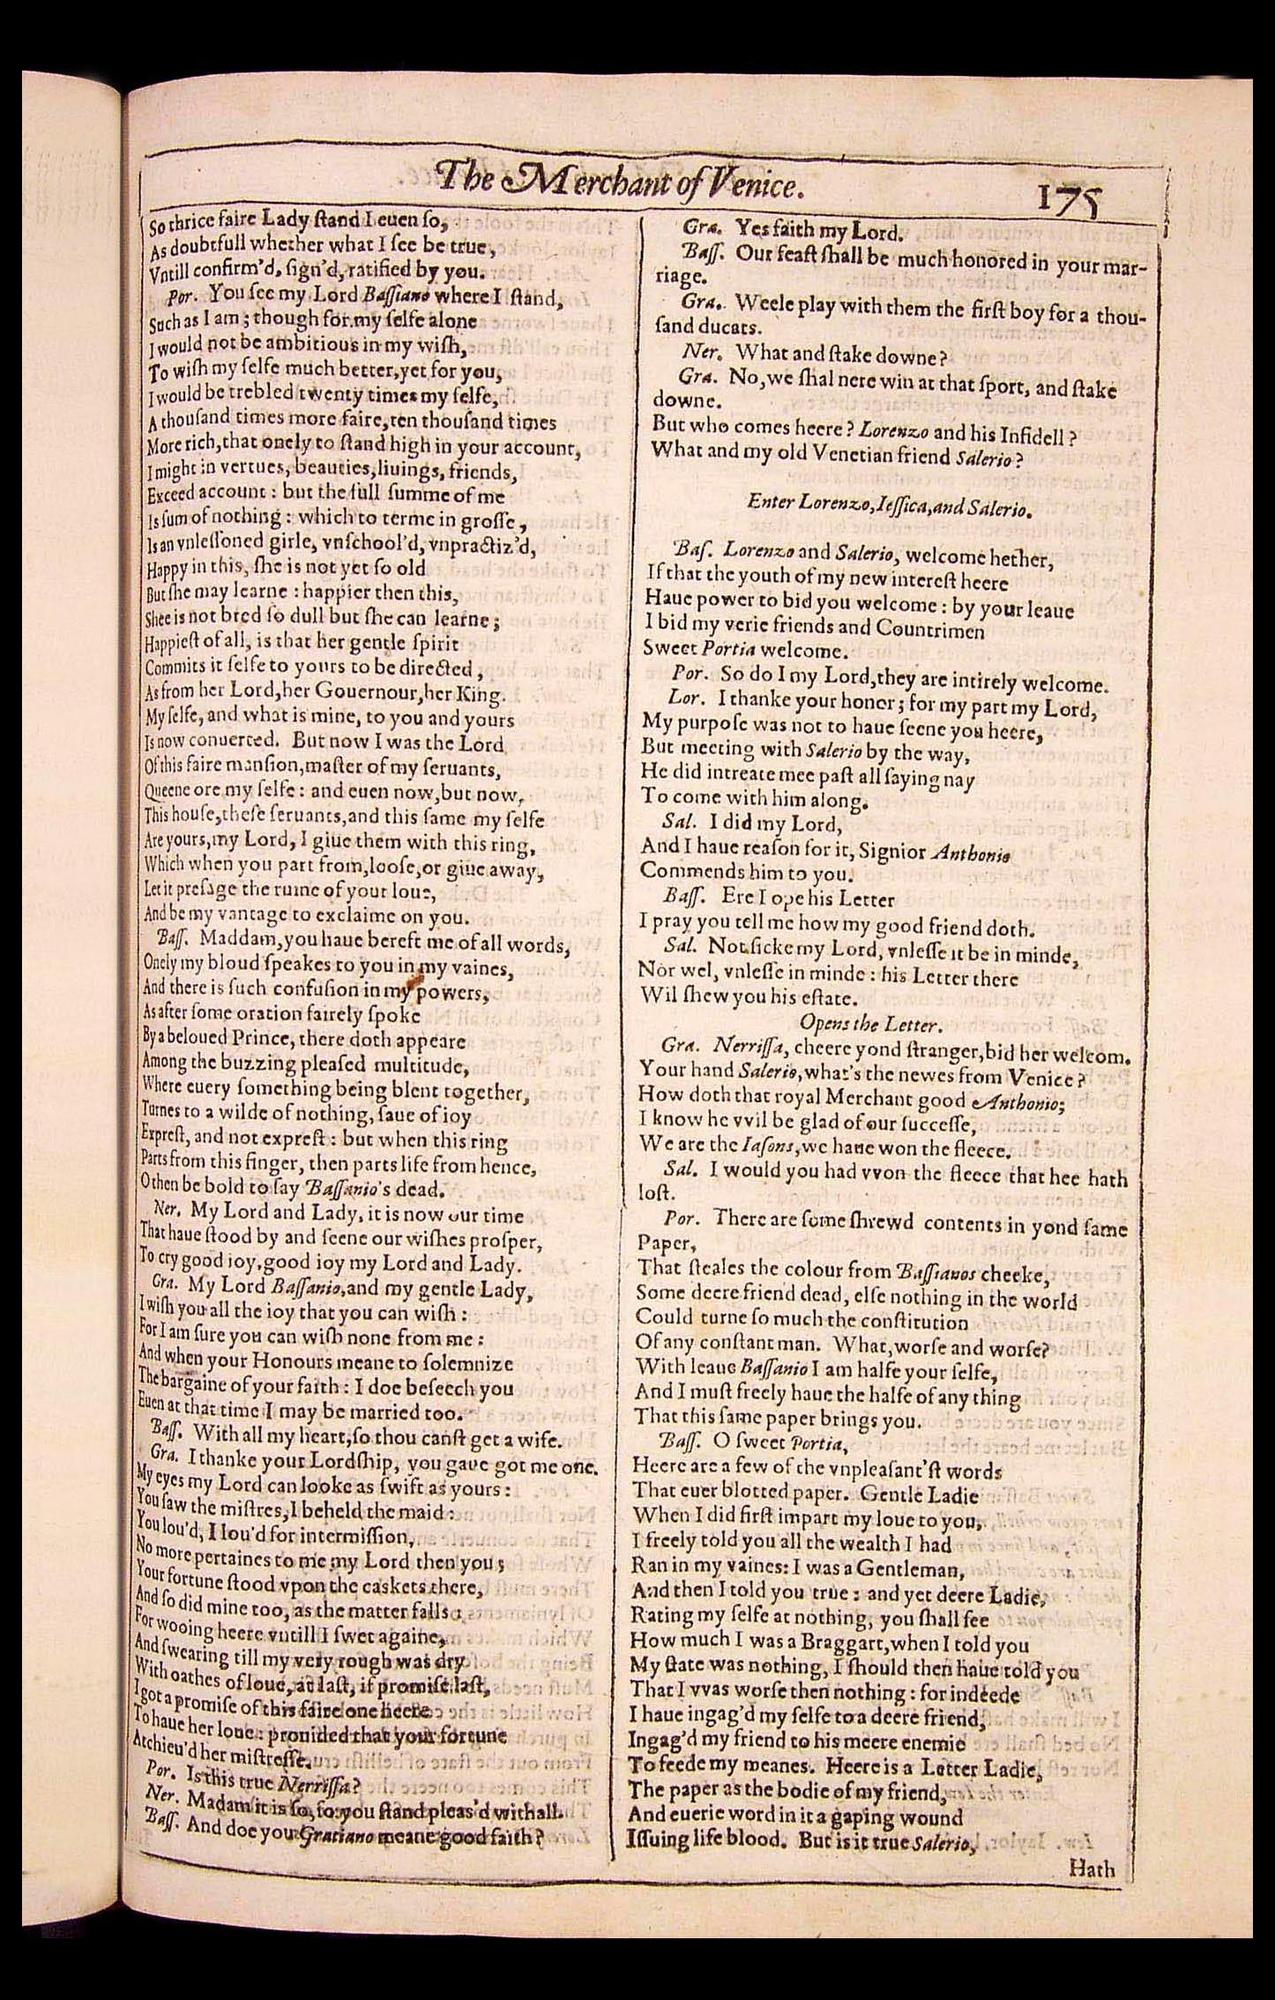 The Merchant of Venice.
175
So thrice faire Lady ſtand I euen ſo,
As doubtfull whether what I ſee be true,
Vntill confirm'd, ſign'd, ratified by you.
Por. You ſee my Lord Baſſiano where I ſtand,
Such as I am; though for my ſelfe alone
I would not be ambitious in my wiſh,
To wiſh my ſelfe much better, yet for you,
I would be trebled twenty times my ſelfe,
A thouſand times more faire, ten thouſand times
More rich, that onely to ſtand high in your account,
I might in vertues, beauties, liuings, friends,
Exceed account: but the full ſumme of me
Is ſum of nothing: which to terme in groſſe,
Is an vnleſſoned girle, vnſchool'd, vnpractiz'd,
Happy in this, ſhe is not yet ſo old
But ſhe may learne: happier then this,
Shee is not bred ſo dull but ſhe can learne;
Happieſt of all, is that her gentle ſpirit
Commits it ſelfe to yours to be directed,
As from her Lord, her Gouernour, her King.
My ſelfe, and what is mine, to you and yours
Is now conuerted. But now I was the Lord
Of this faire manſion, maſter of my ſeruants,
Queene ore my ſelfe: and euen now, but now,
This houſe, theſe ſeruants, and this ſame my ſelfe
Are yours, my Lord, I giue them with this ring,
Which when you part from, looſe, or giue away,
Let it preſage the ruine of your loue,
And be my vantage to exclaime on you.
Baſſ. Maddam, you haue bereft me of all words,
Onely my bloud ſpeakes to you in my vaines,
And there is ſuch confuſion in my powers,
As after ſome oration fairely ſpoke
By a beloued Prince, there doth appeare
Among the buzzing pleaſed multitude,
Where euery ſomething being blent together,
Turnes to a wilde of nothing, ſaue of ioy
Expreſt, and not expreſt: but when this ring
Parts from this finger, then parts life from hence,
O then be bold to ſay Baſſanio's dead.
Ner. My Lord and Lady, it is now our time
That haue ſtood by and ſeene our wiſhes proſper,
To cry good ioy, good ioy my Lord and Lady.
Gra. My Lord Baſſanio, and my gentle Lady,
I wiſh you all the ioy that you can wiſh:
For I am ſure you can wiſh none from me:
And when your Honours meane to ſolemnize
The bargaine of your faith: I doe beſeech you
Euen at that time I may be married too.
Baſſ. With all my heart, ſo thou canſt get a wife.
Gra. I thanke your Lordſhip, you gaue got me one.
My eyes my Lord can looke as ſwift as yours:
You ſaw the miſtres, I beheld the maid:
You lou'd, I lou'd for intermiſſion,
No more pertaines to me my Lord then you;
Your fortune ſtood vpon the caskets there,
And ſo did mine too, as the matter falls:
For wooing heere vntill I ſwet againe,
And ſwearing till my very rough was dry
With oathes of loue, at laſt, if promiſe laſt,
I got a promiſe of this faire one heere
To haue her loue: prouided that your fortune
Atchieu'd her miſtreſſe.
Por. Is this true Nerriſſa?
Ner. Madam it is ſo, ſo you ſtand pleas'd withall.
Baſſ. And doe you Gratiano meane good faith?
Gra. Yes faith my Lord.
Baſſ. Our feaſt ſhall be much honored in your mar-
riage.
Gra. Weele play with them the firſt boy for a thou-
ſand ducats.
Ner. What and ſtake downe?
Gra. No, we ſhal nere win at that ſport, and ſtake
downe.
But who comes heere? Lorenzo and his Infidell?
What and my old Venetian friend Salerio?
Enter Lorenzo, Ieſſica, and Salerio.
Baſ. Lorenzo and Salerio, welcome hether,
If that the youth of my new intereſt heere
Haue power to bid you welcome: by your leaue
I bid my verie friends and Countrimen
Sweet Portia welcome.
Por. So do I my Lord, they are intirely welcome.
Lor. I thanke your honor; for my part my Lord,
My purpoſe was not to haue ſeene you heere,
But meeting with Salerio by the way,
He did intreate mee paſt all ſaying nay
To come with him along.
Sal. I did my Lord,
And I haue reaſon for it, Signior Anthonio
Commends him to you.
Baſſ. Ere I ope his Letter
I pray you tell me how my good friend doth.
Sal. Not ſicke my Lord, vnleſſe it be in minde,
Nor wel, vnleſſe in minde: his Letter there
Wil ſhew you his eſtate.
Opens the Letter.
Gra. Nerriſſa, cheere yond ſtranger, bid her welcom.
Your hand Salerio, what's the newes from Venice?
How doth that royal Merchant good Anthonio;
I know he vvil be glad of our ſucceſſe,
We are the Iaſons, we haue won the fleece.
Sal. I would you had vvon the fleece that hee hath
loſt.
Por. There are ſome ſhrewd contents in yond ſame
Paper,
That ſteales the colour from Baſſianos cheeke,
Some deere friend dead, elſe nothing in the world
Could turne ſo much the conſtitution
Of any conſtant man. What, worſe and worſe?
With leaue Baſſanio I am halfe your ſelfe,
And I muſt freely haue the halfe of any thing
That this ſame paper brings you.
Baſſ. O ſweet Portia,
Heere are a few of the vnpleaſant'ſt words
That euer blotted paper. Gentle Ladie
When I did firſt impart my loue to you,
I freely told you all the wealth I had
Ran in my vaines: I was a Gentleman,
And then I told you true: and yet deere Ladie,
Rating my ſelfe at nothing, you ſhall ſee
How much I was a Braggart, when I told you
My ſtate was nothing, I ſhould then haue told you
That I vvas worſe then nothing: for indeede
I haue ingag'd my ſelfe to a deere friend,
Ingag'd my friend to his meere enemie
To feede my meanes. Heere is a Letter Ladie,
The paper as the bodie of my friend,
And euerie word in it a gaping wound
Iſſuing life blood. But is it true Salerio,
Hath